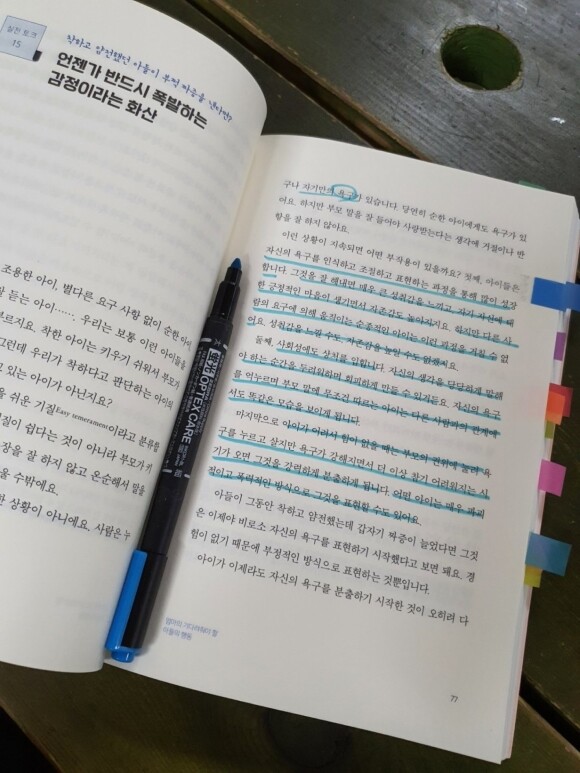 실전 토크
15
착하고 얌전했던 아들이 부쩍 짜증을 낸다면?
언젠가 반드시 폭발하는
감정이라는 화산
조용한 아이, 별다른 요구 사항 없이 순한 아이
말 듣는 아이……. 우리는 보통 이런 아이들을
부르지요. 착한 아이는 키우기 쉬워서 부모가
그런데 우리가 착하다고 판단하는 아이의
고 있는 아이가 아닌지요?
우 쉬운 기질Easy temerament이라고 분류함
질이 쉽다는 것이 아니라 부모가 키
장을 잘 하지 않고 온순해서 말을
을 수밖에요.
한 상황이 아니에요. 사람은 누
OPTEX CARE
구나 자기만의 욕구가 있습니다. 당연히 순한 아이에게도 욕구가 있
어요. 하지만 부모 말을 잘 들어야 사랑받는다는 생각에 거절이나 반
항을 잘 하지 않아요.
이런 상황이 지속되면 어떤 부작용이 있을까요? 첫째, 아이들은
자신의 욕구를 인식하고 조절하고 표현하는 과정을 통해 많이 성장
합니다. 그것을 잘 해내면 매우 큰 성취감을 느끼고, 자기 자신에 대
한 긍정적인 마음이 생기면서 자존감도 높아지지요. 하지만 다른 사
람의 요구에 의해 움직이는 순종적인 아이는 이런 과정을 거칠 수 없
어요. 성취감을 느낄 수도, 자존감을 높일 수도 없겠지요.
둘째, 사회성에도 상처를 입힙니다. 자신의 생각을 당당하게 말해
야 하는 순간을 두려워하며 회피하게 만들 수 있거든요. 자신의 욕구
를 억누르며 부모 말에 무조건 따르는 아이는 다른 사람과의 관계에
서도 똑같은 모습을 보이게 됩니다.
마지막으로 아이가 어려서 힘이 없을 때는 부모의 권위에 눌려 욕
구를 누르고 살지만 욕구가 강해지면서 더 이상 참기 어려워지는 시
기가 오면 그것을 강렬하게 분출하게 됩니다. 어떤 아이는 매우 파괴
적이고 폭력적인 방식으로 그것을 표현할 수도 있어요.
아들이 그동안 착하고 얌전했는데 갑자기 짜증이 늘었다면 그것
은 이제야 비로소 자신의 욕구를 표현하기 시작했다고 보면 돼요. 경
험이 없기 때문에 부정적인 방식으로 표현하는 것뿐입니다.
아이가 이제라도 자신의 욕구를 분출하기 시작한 것이 오히려 다
엄마가 기다려줘야 할
아들의 행동
77